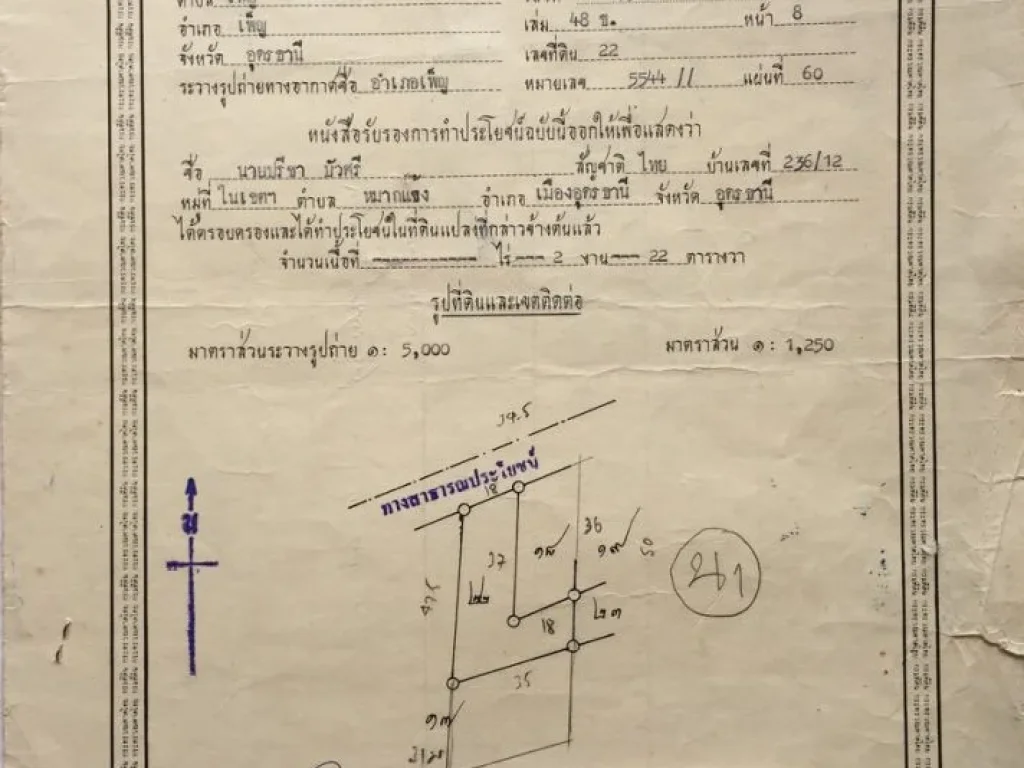 อำเภอ เพ็ญ เล่ม 48 ข. หน้า 8
จังหวัด อุดรธานี เลขที่ดิน 22
ระวางรูปถ่ายทางอากาศชื่อ อำเภอเพ็ญ หมายเลข 5544 II แผ่นที่ 60
หนังสือรับรองการทำประโยชน์ฉบับนี้ออกให้เพื่อแสดงว่า
ชื่อ นายปรีชา บัวศรี สัญชาติ ไทย บ้านเลขที่ 236/12
หมู่ที่ ในเขตฯ ตำบล หมากแข้ง อำเภอ เมืองอุดรธานี จังหวัด อุดรธานี
ได้ครอบครองและได้ทำประโยชน์ในที่ดินแปลงที่กล่าวข้างต้นแล้ว
จำนวนเนื้อที่ ----------- ไร่ --- 2 งาน --- 22 ตารางวา
รูปที่ดินและเขตติดต่อ
มาตราส่วนระวางรูปถ่าย ๑ : 5,000 มาตราส่วน ๑ : 1,250
ทางสาธารณประโยชน์
18
น
37 ๑๘ 36 ๑๙
๒๒ น ๑
18 ๒๓
35
๑๗